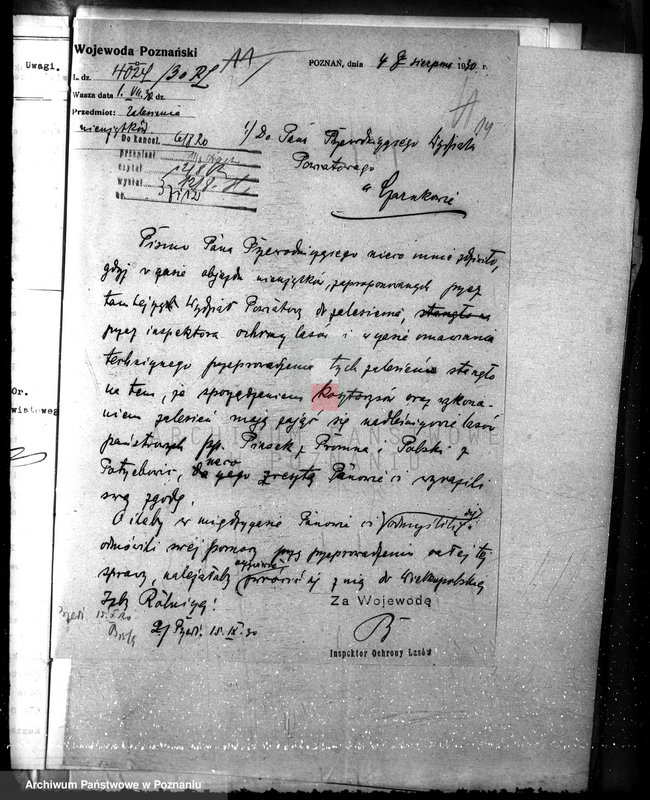 Uwagi.
Wojewoda Poznański
POZNAŃ, dnia 4 sierpnia 1930 r.
L. dz.
Wasza data 1. VII. 30 dz.
Przedmiot: Zalesienie
nieużytków
Do kancel. 6/8 20
przepisał
czytał
wysłał
nr.
14
1/ Do Pana Przewodniczącego Wydziału
Powiatowego
w Czarnkowie
Pismo Pana Przewodniczącego nieco mnie zdziwiło,
gdyż w czasie objazdu nieużytków, zaproponowanych przez
tamtejszy Wydział Powiatowy do zalesienia, stanęło
przez inspektora ochrony lasów i w czasie omawiania
technicznego przeprowadzenia tych zalesień stanęło
na tem, że sporządzeniem kosztorysów oraz wykona-
niem zalesień mają zająć się nadleśniczowie lasów
państwowych pp. Piasek z Promna i Polski z
Potrzebowic, na co zresztą Panowie ci wyrazili
swą zgodę.
O ileby w międzyczasie Panowie ci
odmówili swej pomocy przy przeprowadzeniu całej tej
sprawy, należałoby zwrócić się z nią do Wielkopolskiej
Izby Rolniczej!
Za Wojewodę
2/ Przedł. 15. IX. 30
Inspektor Ochrony Lasów
Or.
wiatoweg
ARCHIWUM PAŃSTWOWE
W POZNANIU
Archiwum Państwowe w Poznaniu